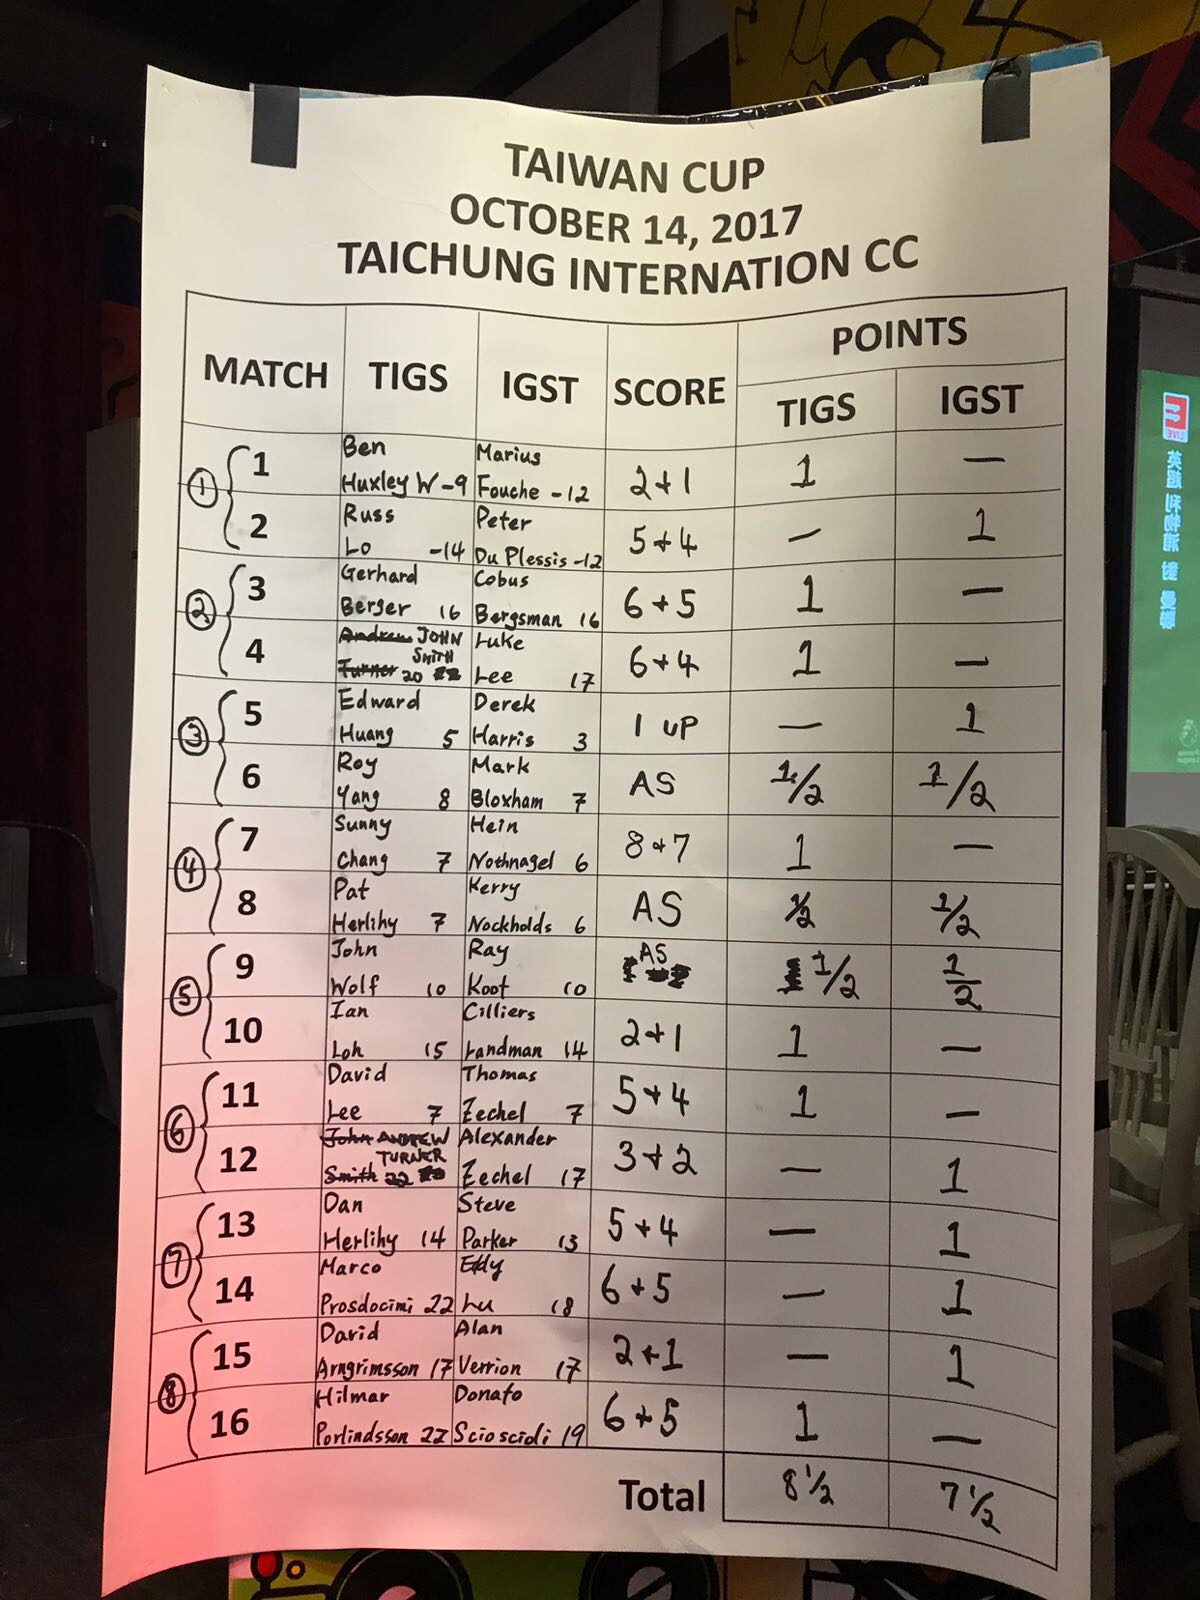 TAIWAN CUP
OCTOBER 14, 2017
TAICHUNG INTERNATION CC
MATCH TIGS IGST SCORE POINTS
TIGS IGST
① 1 Ben Huxley W -9 Marius Fouche -12 2+1 1 —
2 Russ Lo -14 Peter Du Plessis -12 5+4 — 1
② 3 Gerhard Berger 16 Cobus Bergsman 16 6+5 1 —
4 Andrew Turner JOHN SMITH 20 22 Luke Lee 17 6+4 1 —
③ 5 Edward Huang 5 Derek Harris 3 1 UP — 1
6 Roy Yang 8 Mark Bloxham 7 AS 1/2 1/2
④ 7 Sunny Chang 7 Hein Nothnagel 6 8+7 1 —
8 Pat Herlihy 7 Kerry Nockholds 6 AS 1/2 1/2
⑤ 9 John Wolf 10 Ray Koot 10 AS 1/2 1/2
10 Ian Loh 15 Cilliers Landman 14 2+1 1 —
⑥ 11 David Lee 7 Thomas Zechel 7 5+4 1 —
12 John Smith ANDREW TURNER 22 Alexander Zechel 17 3+2 — 1
⑦ 13 Dan Herlihy 14 Steve Parker 13 5+4 — 1
14 Marco Prosdocimi 22 Eddy Lu 18 6+5 — 1
⑧ 15 David Arngrimsson 17 Alan Verrion 17 2+1 — 1
16 Hilmar Portindsson 22 Donato Scioscioli 19 6+5 1 —
Total 8 1/2 7 1/2
LIVE